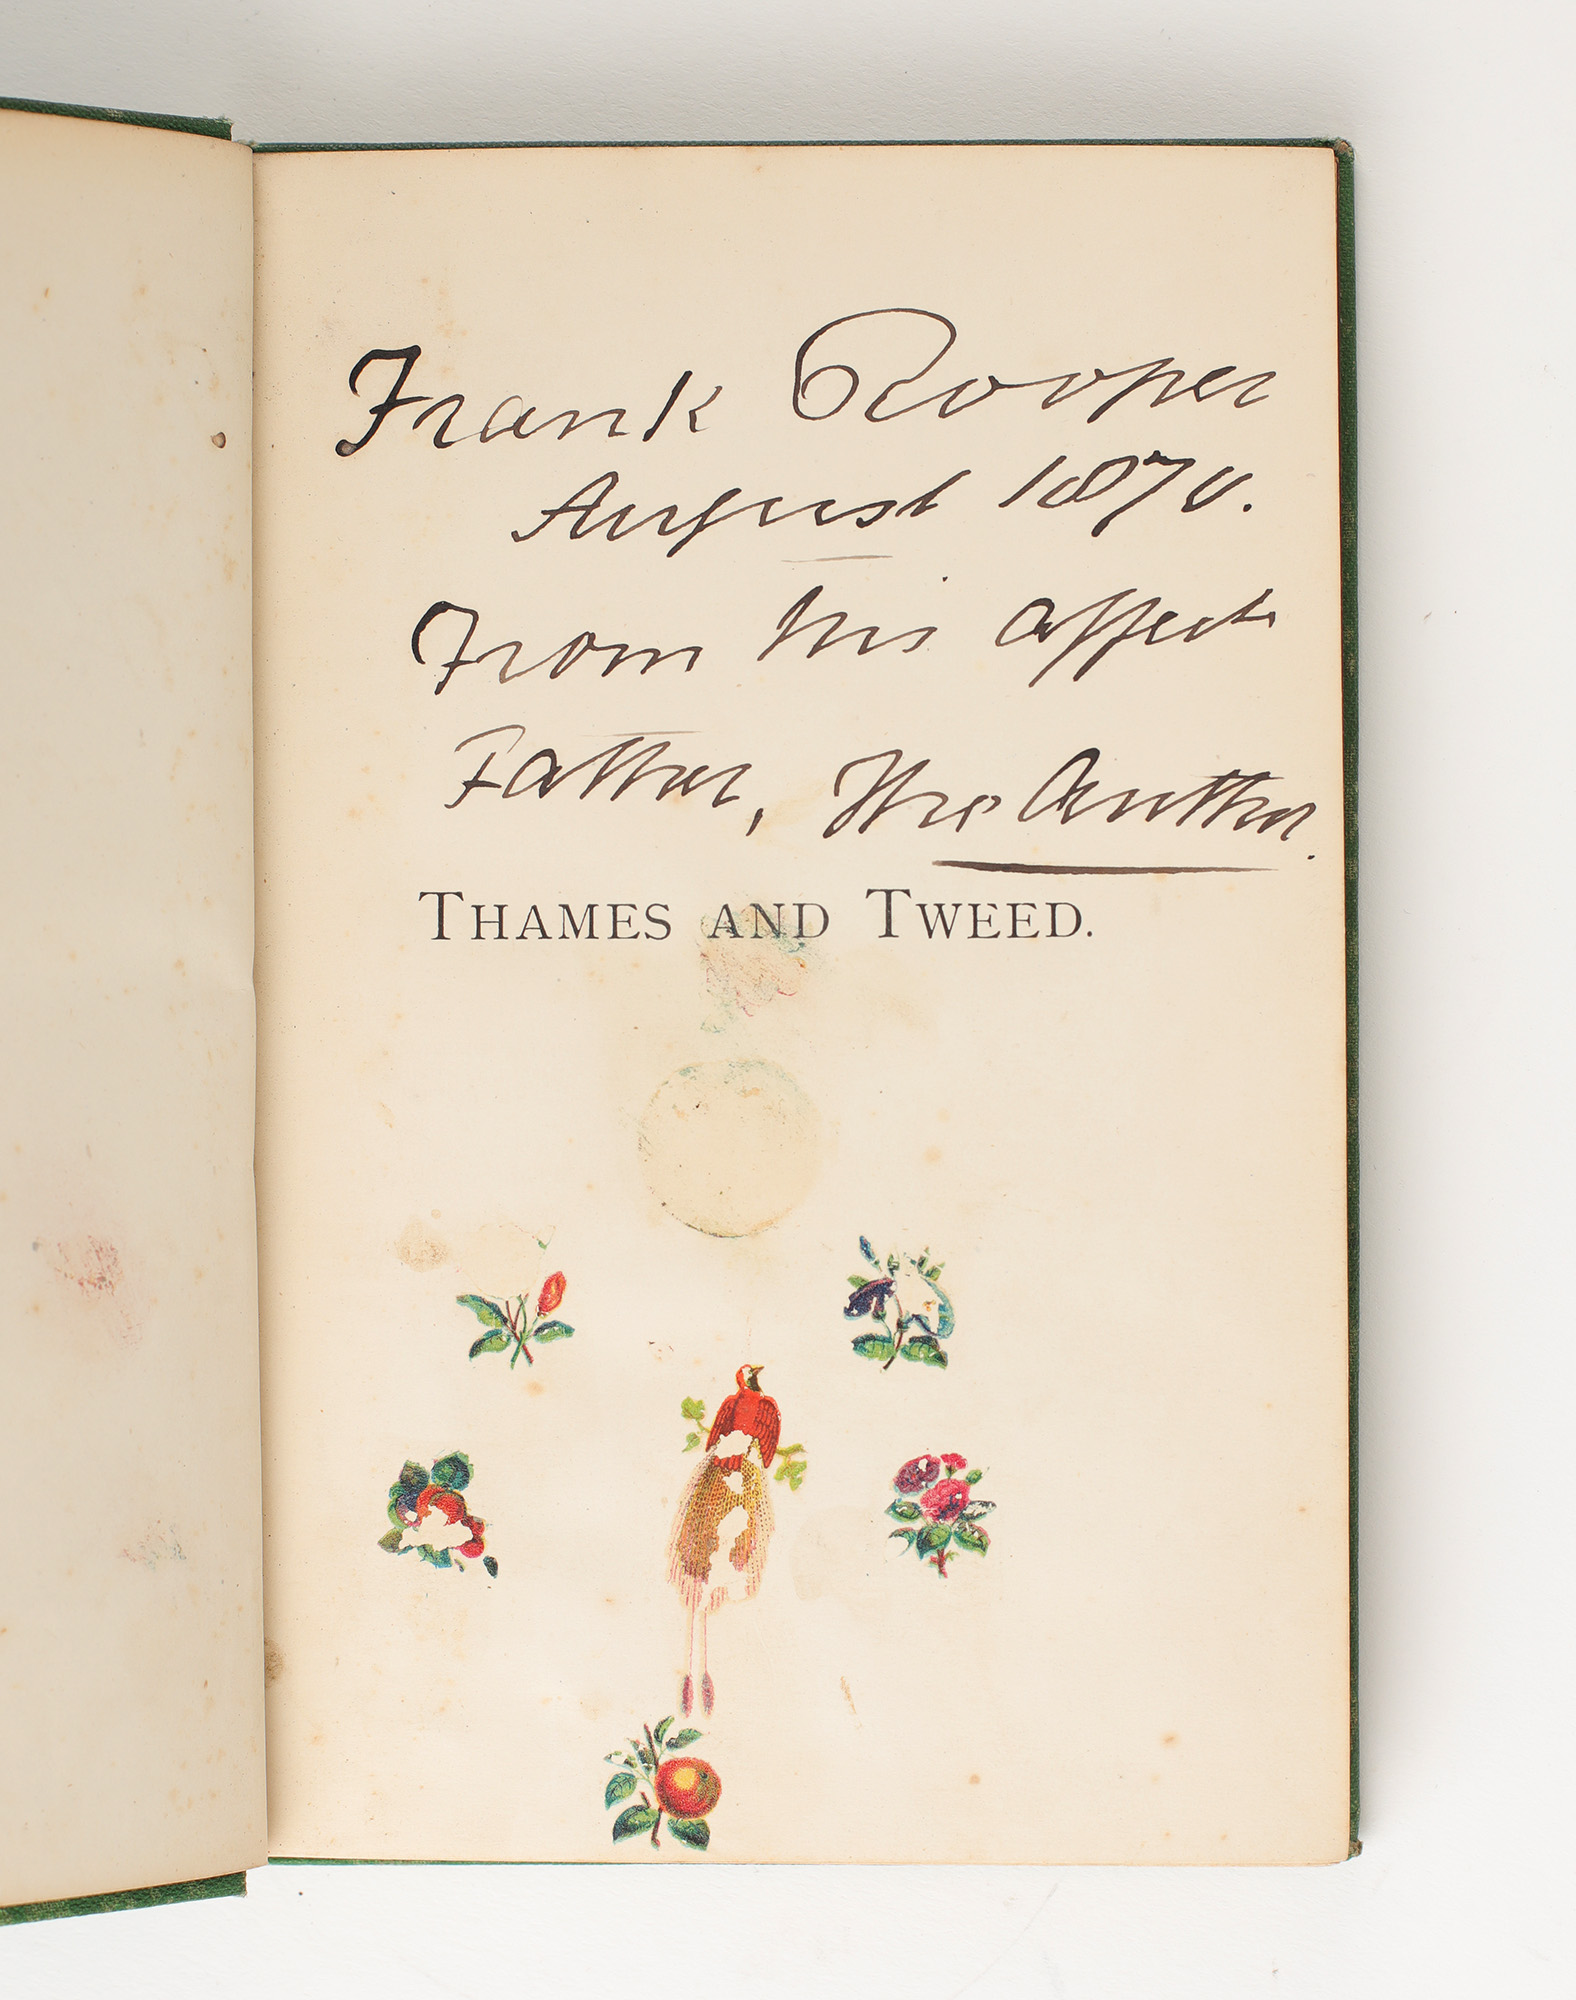 Frank Rooper
August 1870.
From his affect
Father, The Author.
THAMES AND TWEED.